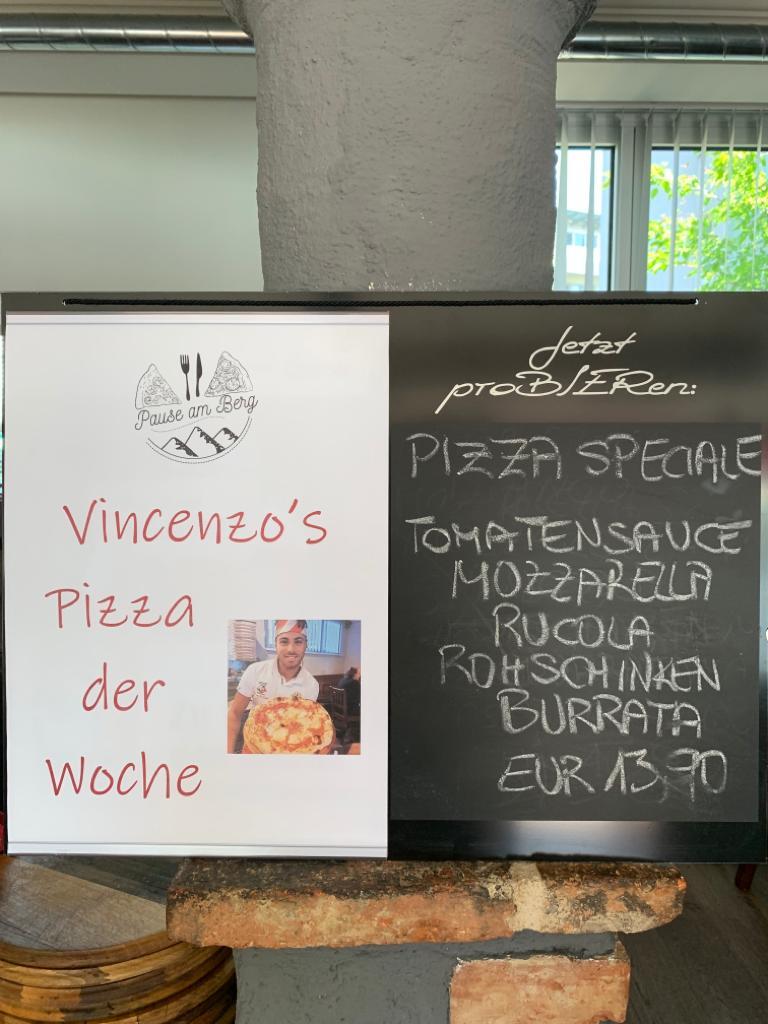 Pause am Berg
Vincenzo's
Pizza
der
Woche
Jetzt
proBIERen:
PIZZA SPECIALE
TOMATENSAUCE
MOZZARELLA
RUCOLA
ROHSCHINKEN
BURRATA
EUR 13,90